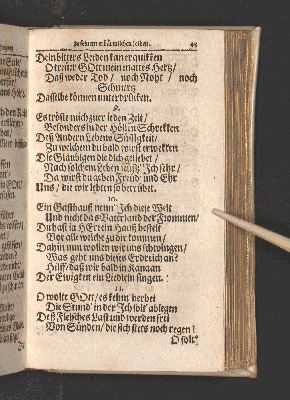 zu seinem erkäntlichen leben. 45
Dein bitters Leyden kan erquikken
O treuer GOtt mein mattes Hertz/
Daß weder Tod / noch Noht / noch
Schmertz
Dasselbe können unterdrükken.
9.
Es tröste mich zur leden Zeit/
Besonders in der Höllen Schrekken
Deß Andern Lebens Süssigkeit/
Zu welchem du bald wirst erwekken
Die Gläubigen die dich geliebet/
Nach solchem Leben seufz' Ich sehr/
Da wirst du geben Freud' und Ehr
Uns / die wir lebten so betrübet.
10.
Ein Gasthauß nenn' Ich diese Welt
Und nicht das Vaterland der Frommen/
Du hast ja HErr ein Hauß bestelt
Vor alle welche zu dir kommen/
Dahin nun wollen wir uns schwingen/
Was geht uns dieses Erdreich an?
Hilff/ daß wir bald in Kanaan
Der Ewigkeit ein Liedlein singen.
11.
O wolte GOtt/ es kehm' herbei
Die Stund' in der Ich solt' ablegen
Deß Fleisches Last und werden frei
Von Sünden/ die sich stets noch regen!
O solt'